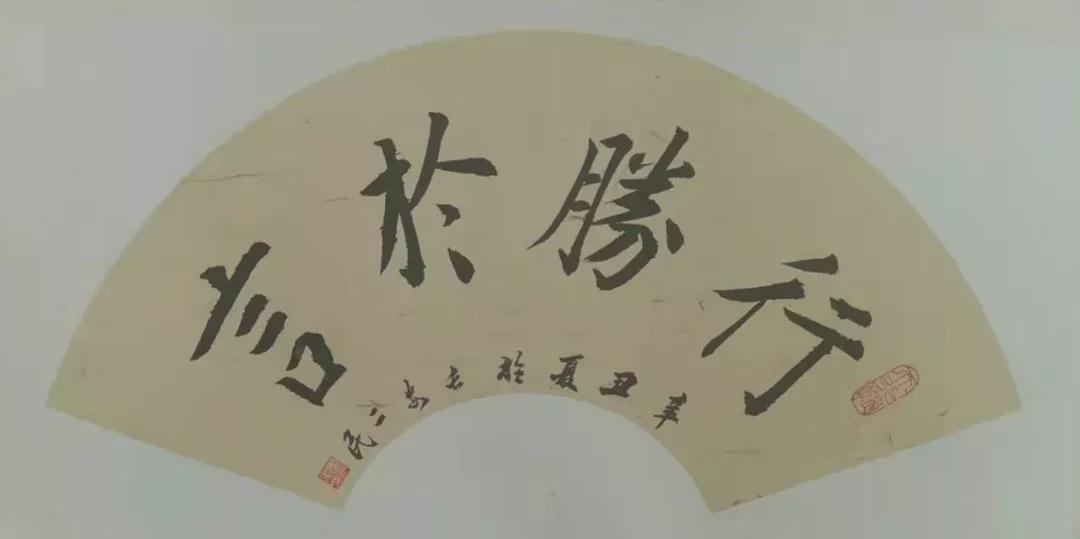 行勝於言
辛丑夏於
民